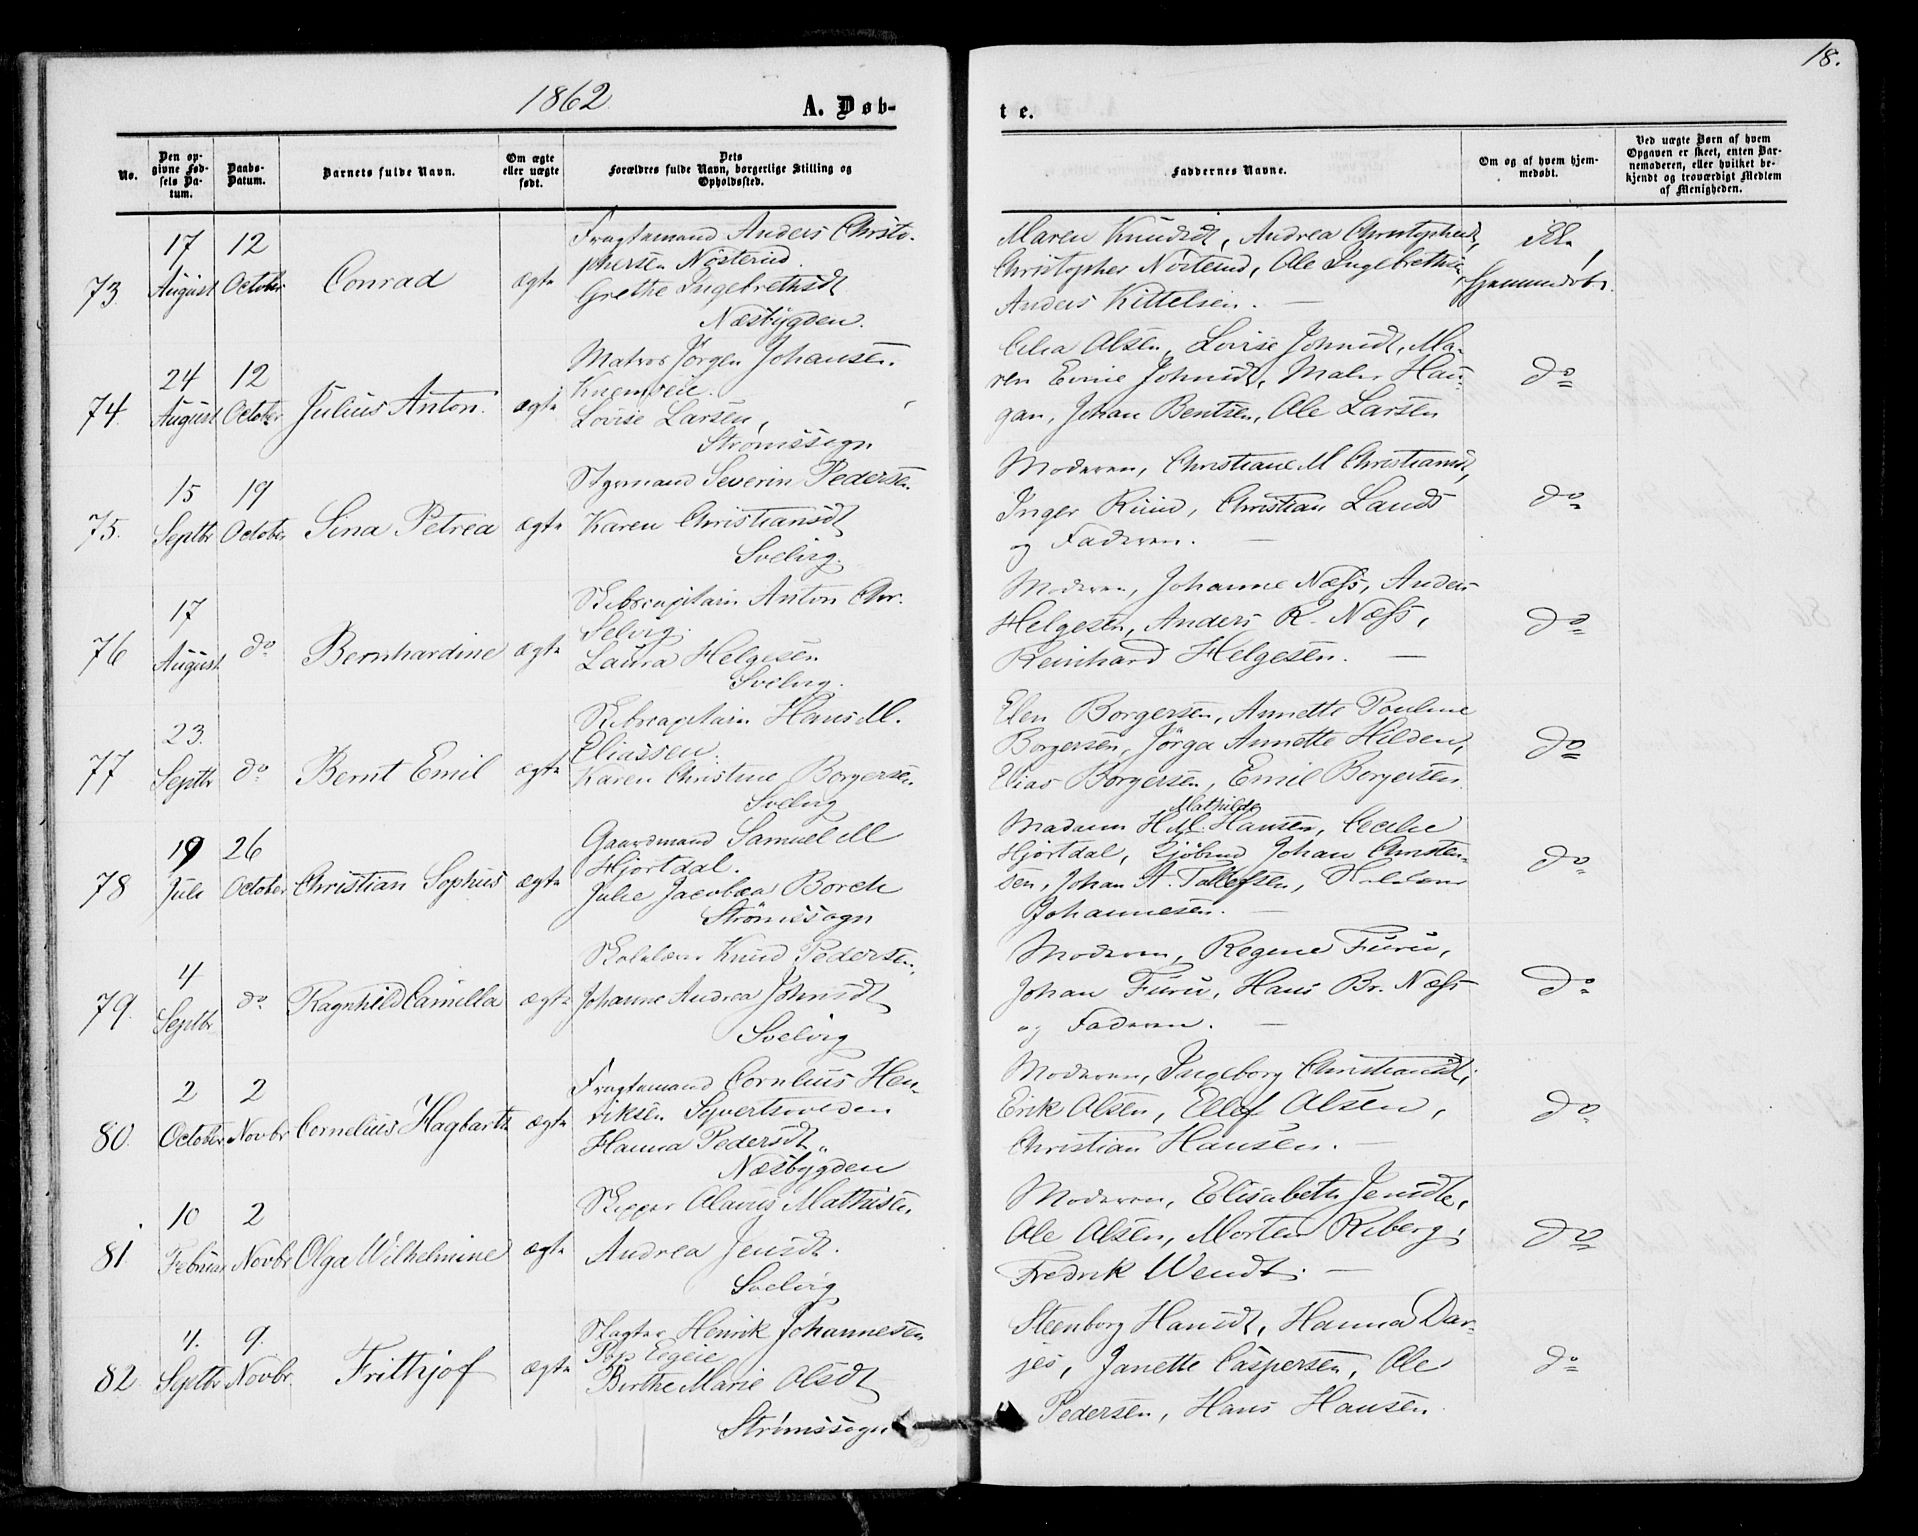 18.
1862
A. Døb-
t e.
No.
Den op-
givne Fød-
sels Da-
tum.
Daabs-
Datum.
Barnets fulde Navn.
Om ægte
eller uægte
født.
Dets
Forældres fulde Navn, borgerlige Stilling og
Opholdssted.
Faddernes Navne.
Om og af hvem hjem-
medøbt.
Ved uægte Børn af hvem
Opgaven er skeet, enten Bar-
nemoderen, eller hvilket be-
kjendt og troværdigt Medlem
af Menigheden.
73
17
August
12
October
Conrad
ægte
Fragtemand Anders Christo-
phersen Nösterud.
Grethe Ingebrethsdt
Næsbygden.
Maren Knudsdt, Andrea Christophsdt,
Christopher Nösterud, Ole Ingebrethsen,
Anders Kittelsen. —
ikke
hjemmedøbt.
74.
24
August
12
October
Julius Anton.
ægte
Matros Jörgen Johansen.
Knemveie.
Lovise Larsen,
Strömssogn
Olsen, Lovise Johnsdt, Ma-
ren Johnsdt, Maler Hau-
gan, Johan Bentsen, Ole Larsen
do
75.
15
Septbr
19
October
Sina Petrea
ægte
Styrmand Severin Pedersen.
Karen Christiansdt
Svelvig.
Moderen, Christiane M Christiansdt,
Inger Ruud, Christian Lands
og Faderen. —
do
76
17
August
do
Bernhardine
ægte
Skibscapitain Anton Chr.
Selvig.
Laura Helgesen
Svelvig.
Moderen, Johanne Næss, Anders
Helgesen, Anders R. Næss,
Reinhard Helgesen. —
do
77
23.
Septbr
do
Bernt Emil
ægte
Skibscapitain Hans M.
Eliassen.
Karen Christine Borgersen.
Svelvig
Elen Borgersen, Annette Pouline
Borgersen, Jörga Annette Hilden,
Elias Borgersen, Emil Borgersen.
do
78
19
Juli
26
October
Christian Sophus
ægte
Gaardmand Samuel M
Hjortdal.
Julie Jacobea Borch
Strömssogn
Mathilde
Madam H. M. Hansen, Cecilie
Hjortdal, Johan Christen-
sen, Johan A. Tollefsen,
Johannesen. —
do
79.
4
Septbr
do
Ragnhild Camilla
ægte
Skolelærer Knud Pedersen,
Johanne Andrea Johnsdt
Svelvig
Moderen, Regine Furu,
Johan Furu, Hans Br. Næss
og Faderen. —
do
80.
2
October
2
Novbr
Cornelius Hagbarth
ægte
Fragtemand Cornelius Hen-
riksen Syvertsvolden
Hanna Pedersdt,
Næsbygden
Moderen, Ingeborg Christiansdt,
Erik Olsen, Ellef Olsen,
Christian Hansen. —
do
81.
10
Februar
2
Novbr
Olga Wilhelmine
ægte
Skipper Olaus Mathisen,
Andrea Jensdt.
Svelvig
Moderen, Elisabeth Jensdt,
Ole Olsen, Morten Reberg,
Fredrik Wendt. —
do
82.
4.
Septbr
9.
Novbr.
Frithjof
ægte
Slagter Henrik Johannesen
Berthe Marie Olsdt
Strömssogn
Steenborg Hansdt, Hanna Dar-
jes, Janette Caspersen, Ole
Pedersen, Hans Hansen.
do